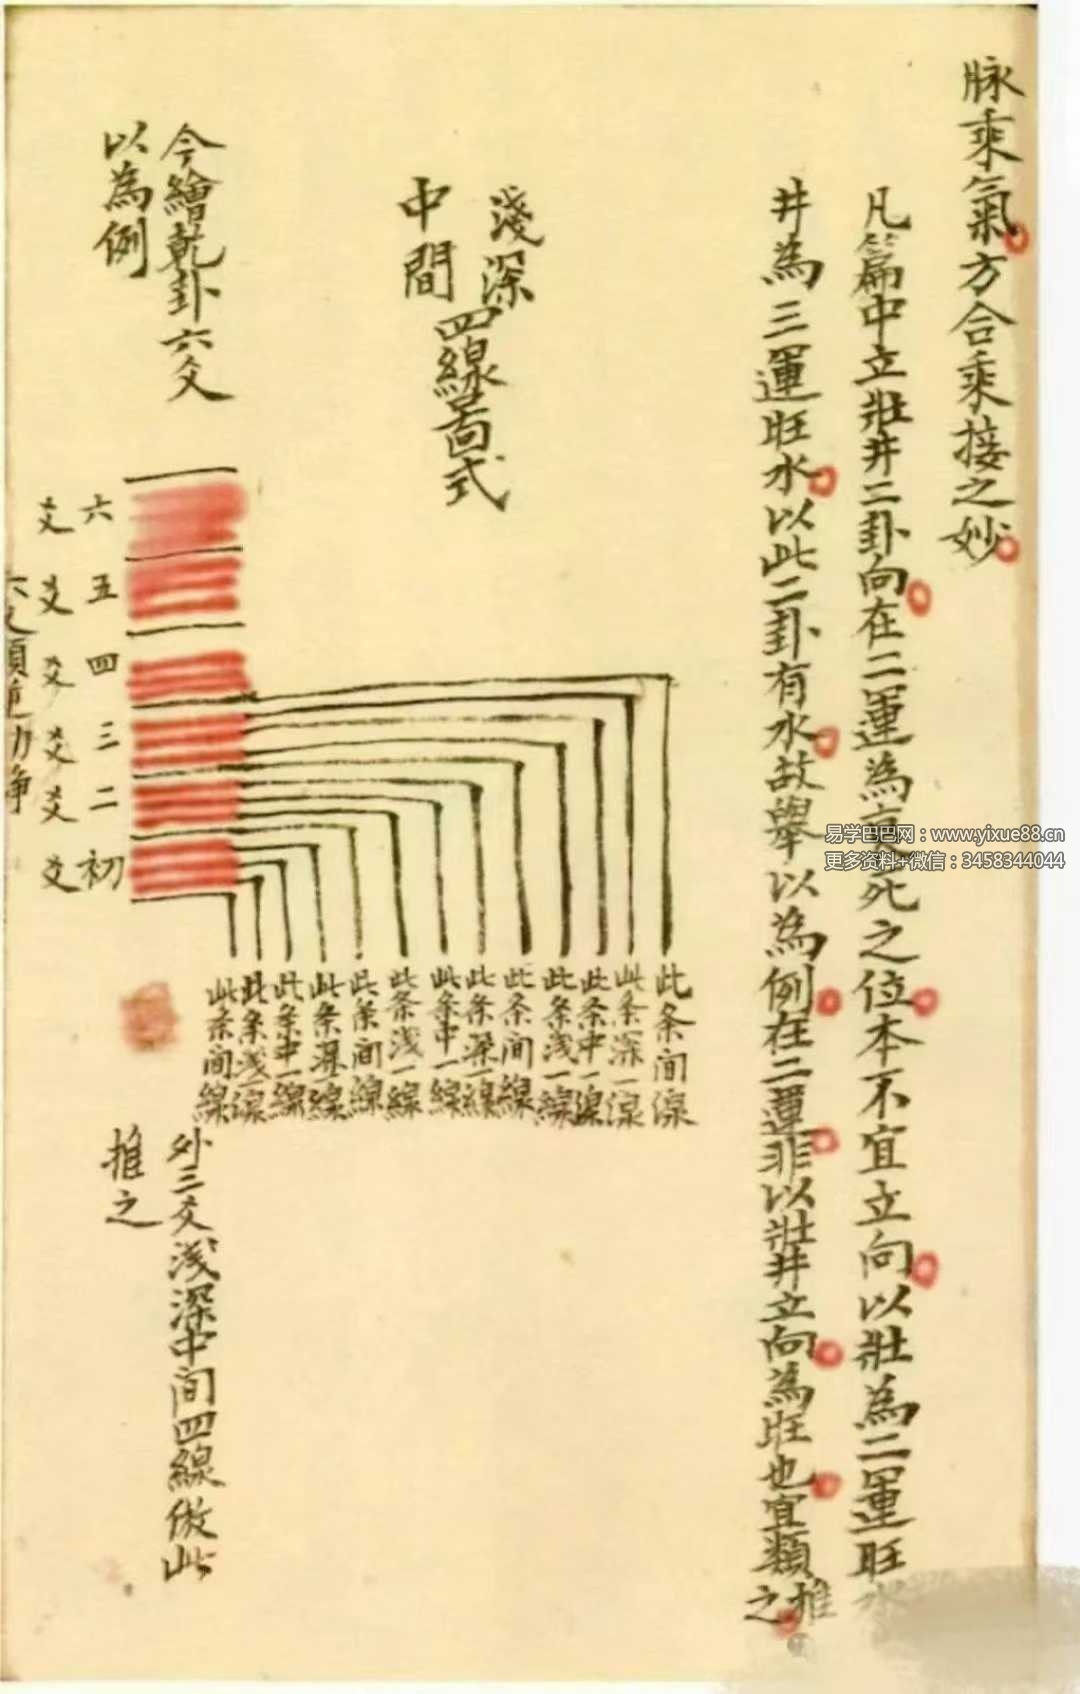 脉乘氣方合乘接之妙
凡篇中立壯井二卦向在二運為衰死之位本不宜立向以壯為二運旺水
井為三運旺水以此二卦有水故舉以為例在二運非以壯井立向為旺也宜類推之
淺深
中間
四線啚式
今繪乾卦六爻
以為例
六爻
五爻
四爻
三爻
二爻
初爻
此条间線
此条深一線
此条中一線
此条浅一線
此条间線
此条深一線
此条中一線
此条浅一線
此条间線
此条深一線
此条中一線
此条浅一線
此条间線
外三爻浅深中间四線倣此
推之
易学巴巴网：www.yixue88.cn
更多资料+微信：3458344044